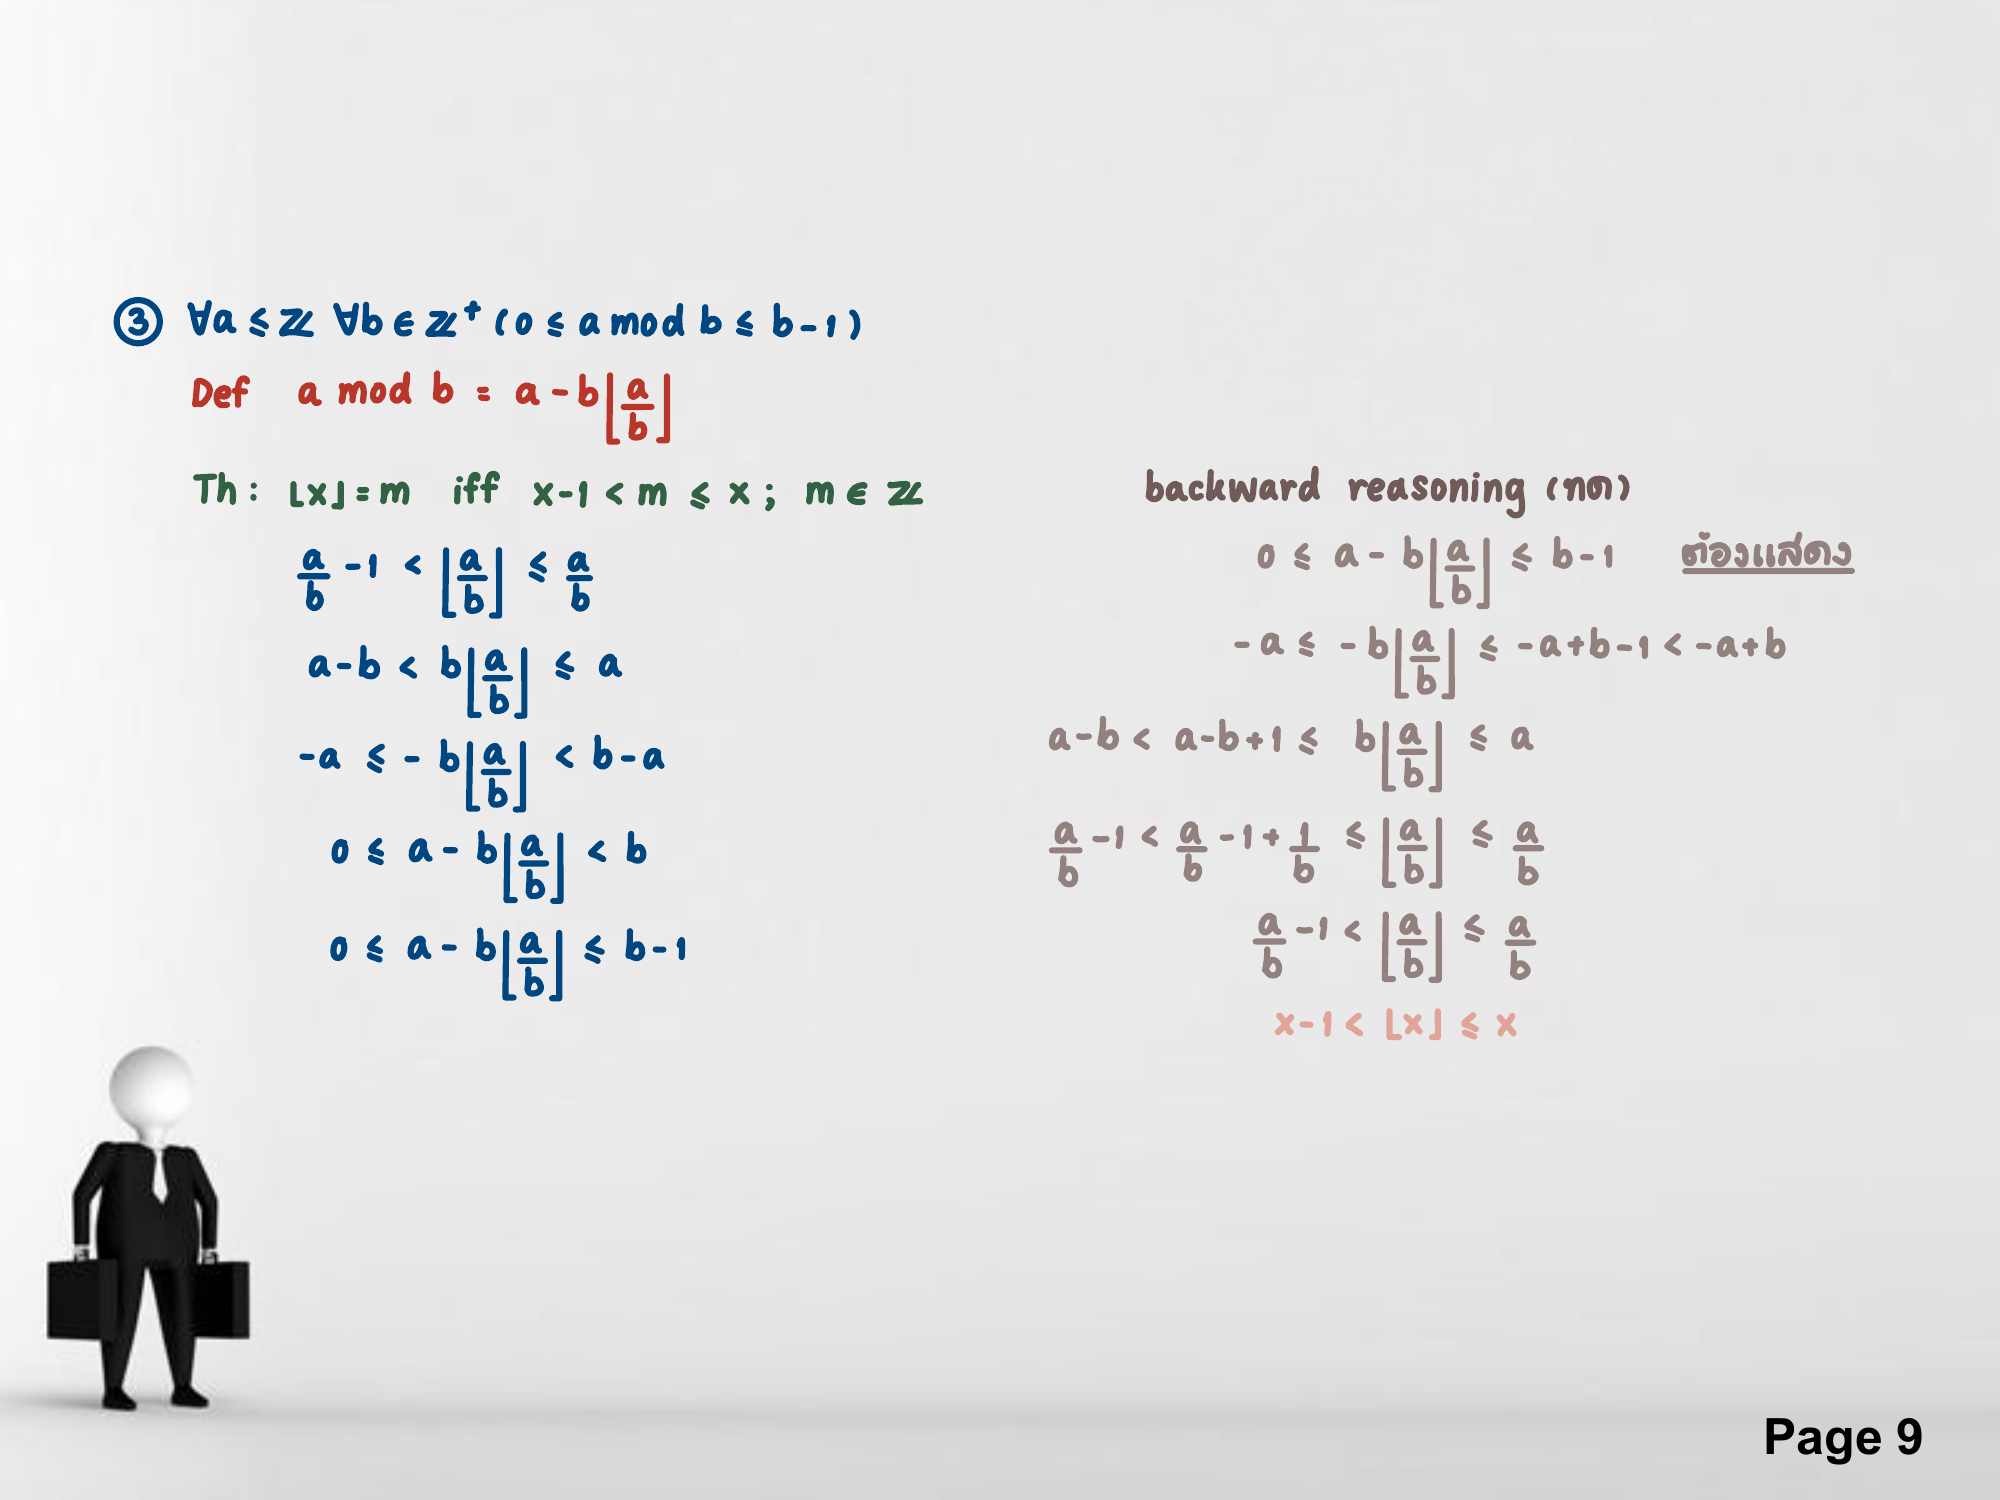 ③ ∀a ≤ ℤ ∀b ∈ ℤ⁺ (0 ≤ a mod b ≤ b-1)
Def a mod b = a - b⌊a/b⌋
Th: ⌊x⌋ = m iff x-1 < m ≤ x ; m ∈ ℤ
a/b -1 < ⌊a/b⌋ ≤ a/b
a-b < b⌊a/b⌋ ≤ a
-a ≤ -b⌊a/b⌋ < b-a
0 ≤ a - b⌊a/b⌋ < b
0 ≤ a - b⌊a/b⌋ ≤ b-1
backward reasoning (ทด)
0 ≤ a - b⌊a/b⌋ ≤ b-1 ต้องแสดง
-a ≤ -b⌊a/b⌋ ≤ -a+b-1 < -a+b
a-b < a-b+1 ≤ b⌊a/b⌋ ≤ a
a/b -1 < a/b -1 + 1/b ≤ ⌊a/b⌋ ≤ a/b
a/b -1 < ⌊a/b⌋ ≤ a/b
x-1 < ⌊x⌋ ≤ x
Page 9